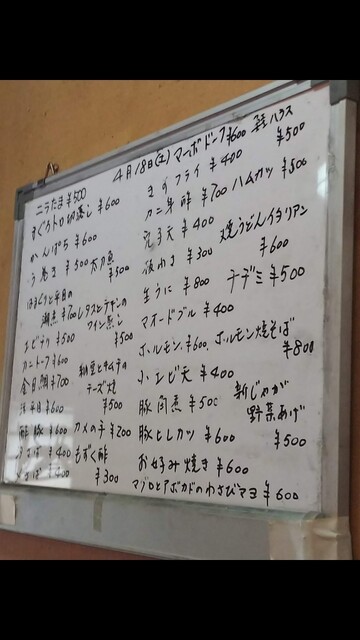 4月18日(土) マーボドーフ ¥600
ハラス ¥500
ニラたま ¥500
まぐろトロ切落し ¥600
かんぱち ¥600
う巻き ¥500
太刀魚 ¥500
潮煮 ¥700
レタスとアサリの
ワイン蒸し ¥500
エビチリ ¥500
カントーフ ¥600
金目鯛 ¥700
納豆とキムチの
チーズ焼 ¥500
活平目 ¥600
酢豚 ¥600
カメの手 ¥200
¥400
もずく酢 ¥300
¥400
フライ ¥400
カニ身酢 ¥700
ハムカツ ¥500
¥400
¥300
焼うどんイタリアン
¥600
生うに ¥800
チヂミ ¥500
オードブル ¥400
ホルモン ¥600
ホルモン焼そば
¥800
小エビ天 ¥400
新じゃが
野菜あげ
¥500
豚角煮 ¥500
豚ヒレカツ ¥600
お好み焼き ¥600
マグロとアボカドのわさびマヨ ¥600